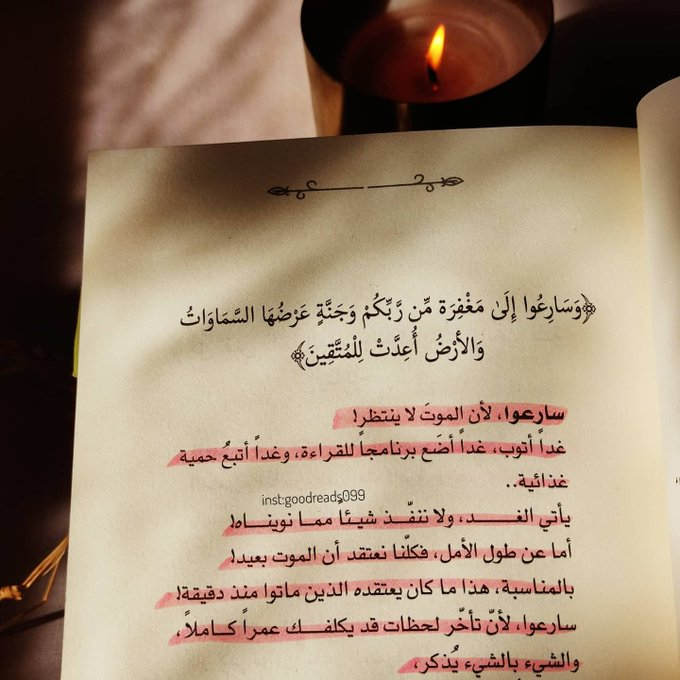 ﴿وَسَارِعُوا إِلَىٰ مَغْفِرَة مِّن رَّبِّكُمْ وَجَنَّةٍ عَرْضُهَا السَّمَاوَاتُ
وَالأرْضُ أُعِدَّتْ لِلْمُتَّقِينَ﴾
سارعوا، لأن الموتَ لا ينتظر!
غداً أتوب، غداً أضَع برنامجاً للقراءة، وغداً أتبعُ حمية
غذائية..
inst:goodreads099
يأتي الغــــد، ولا ننفّــذ شيـئاً ممـا نوينـاه!
أما عن طول الأمل، فكلّنا نعتقد أن الموت بعيد!
بالمناسبة، هذا ما كان يعتقده الذين ماتوا منذ دقيقة!
سارعوا، لأنّ تأخّر لحظات قد يكلفـــك عمراً كــاملاً،
والشيء بالشيء يُذكر،